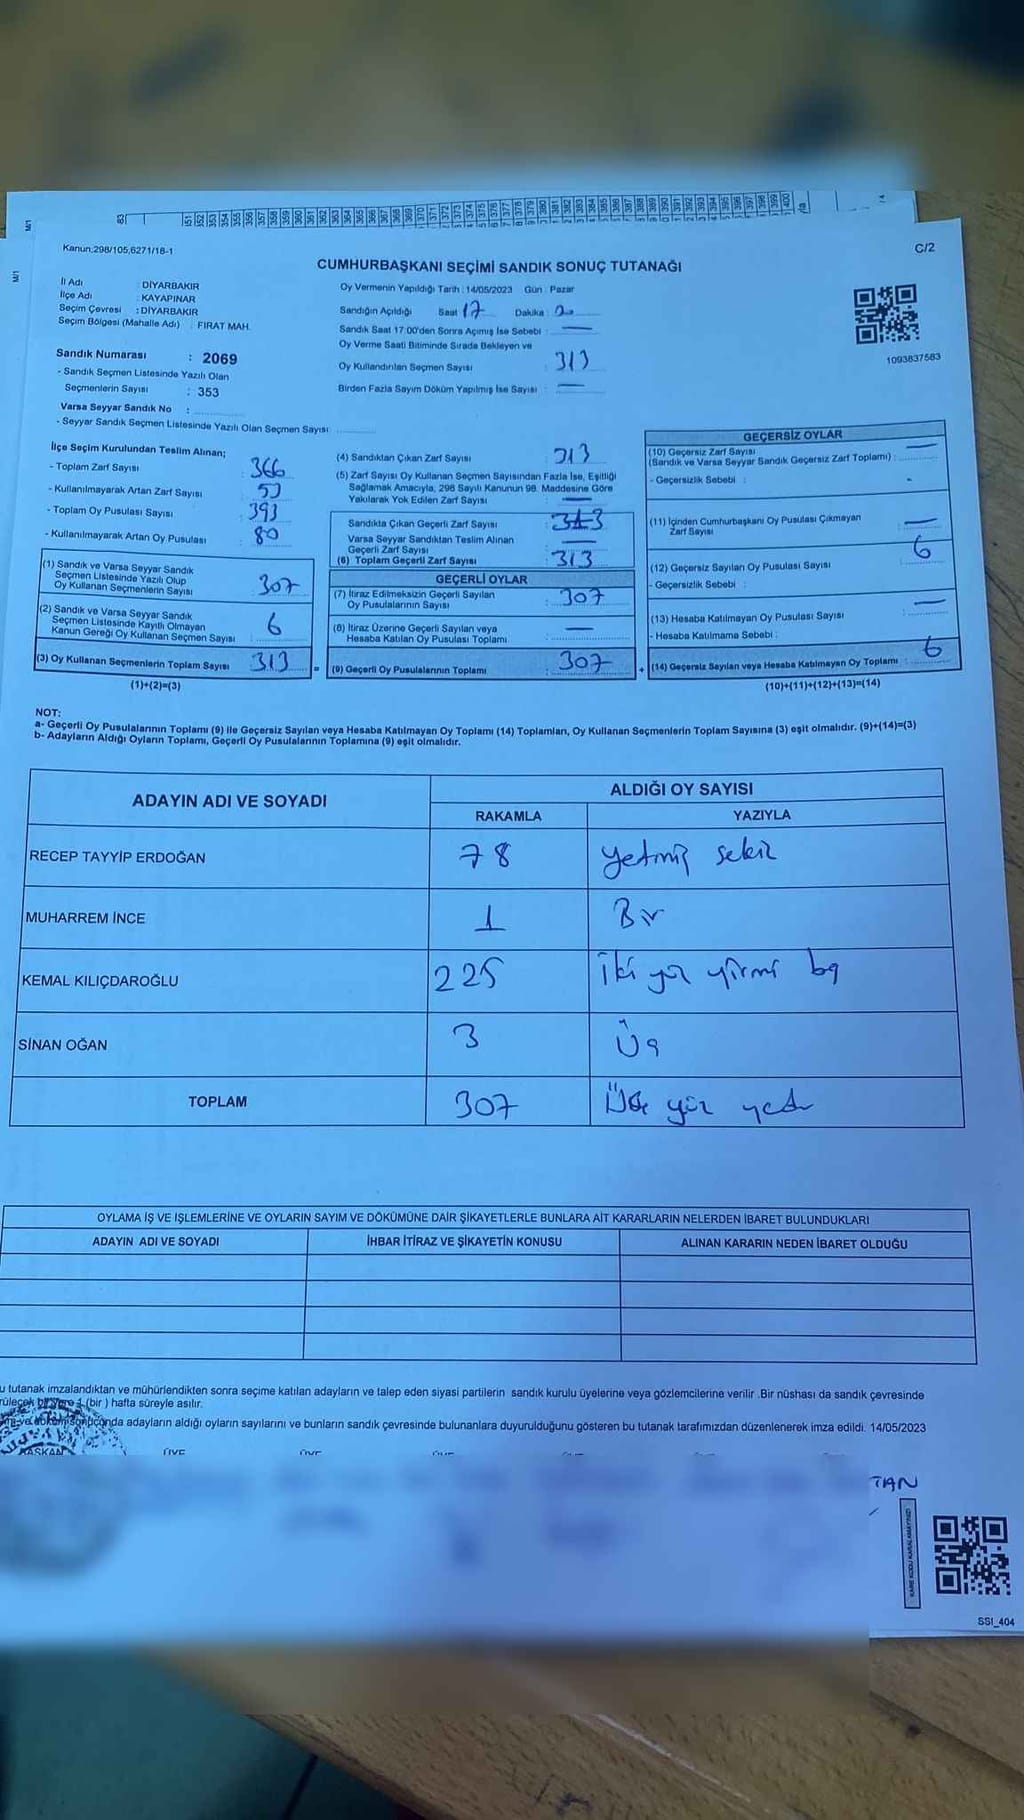 Kanun:298/105,6271/18-1
C/2
CUMHURBAŞKANI SEÇİMİ SANDIK SONUÇ TUTANAĞI
İl Adı : DİYARBAKIR
İlçe Adı : KAYAPINAR
Seçim Çevresi : DİYARBAKIR
Seçim Bölgesi (Mahalle Adı) : FIRAT MAH.
Sandık Numarası : 2069
- Sandık Seçmen Listesinde Yazılı Olan
Seçmenlerin Sayısı : 353
Varsa Seyyar Sandık No :
- Seyyar Sandık Seçmen Listesinde Yazılı Olan Seçmen Sayısı:
Oy Vermenin Yapıldığı Tarih : 14/05/2023 Gün : Pazar
Sandığın Açıldığı Saat 17 Dakika :
Sandık Saat 17:00'den Sonra Açımış İse Sebebi : —
Oy Verme Saati Bitiminde Sırada Bekleyen ve
Oy Kullandırılan Seçmen Sayısı 313
Birden Fazla Sayım Döküm Yapılmış İse Sayısı : —
1093837583
İlçe Seçim Kurulundan Teslim Alınan;
- Toplam Zarf Sayısı 366
- Kullanılmayarak Artan Zarf Sayısı 53
- Toplam Oy Pusulası Sayısı 393
- Kullanılmayarak Artan Oy Pusulası 80
(1) Sandık ve Varsa Seyyar Sandık
Seçmen Listesinde Yazılı Olup
Oy Kullanan Seçmenlerin Sayısı 307
(2) Sandık ve Varsa Seyyar Sandık
Seçmen Listesinde Kayıtlı Olmayan
Kanun Gereği Oy Kullanan Seçmen Sayısı 6
(3) Oy Kullanan Seçmenlerin Toplam Sayısı 313
(1)+(2)=(3)
(4) Sandıktan Çıkan Zarf Sayısı 313
(5) Zarf Sayısı Oy Kullanan Seçmen Sayısından Fazla İse, Eşitliği
Sağlamak Amacıyla, 298 Sayılı Kanunun 98. Maddesine Göre
Yakılarak Yok Edilen Zarf Sayısı —
Sandıkta Çıkan Geçerli Zarf Sayısı : 313
Varsa Seyyar Sandıktan Teslim Alınan
Geçerli Zarf Sayısı —
(6) Toplam Geçerli Zarf Sayısı : 313
GEÇERLİ OYLAR
(7) İtiraz Edilmeksizin Geçerli Sayılan
Oy Pusulalarının Sayısı : 307
(8) İtiraz Üzerine Geçerli Sayılan veya
Hesaba Katılan Oy Pusulası Toplamı : —
(9) Geçerli Oy Pusulalarının Toplamı : 307
GEÇERSİZ OYLAR
(10) Geçersiz Zarf Sayısı —
(Sandık ve Varsa Seyyar Sandık Geçersiz Zarf Toplamı) :
- Geçersizlik Sebebi : -
(11) İçinden Cumhurbaşkanı Oy Pusulası Çıkmayan
Zarf Sayısı —
(12) Geçersiz Sayılan Oy Pusulası Sayısı 6
- Geçersizlik Sebebi :
(13) Hesaba Katılmayan Oy Pusulası Sayısı —
- Hesaba Katılmama Sebebi :
(14) Geçersiz Sayılan veya Hesaba Katılmayan Oy Toplamı : 6
(10)+(11)+(12)+(13)=(14)
NOT:
a- Geçerli Oy Pusulalarının Toplamı (9) ile Geçersiz Sayılan veya Hesaba Katılmayan Oy Toplamı (14) Toplamları, Oy Kullanan Seçmenlerin Toplam Sayısına (3) eşit olmalıdır. (9)+(14)=(3)
b- Adayların Aldığı Oyların Toplamı, Geçerli Oy Pusulalarının Toplamına (9) eşit olmalıdır.
ADAYIN ADI VE SOYADI ALDIĞI OY SAYISI
RAKAMLA YAZIYLA
RECEP TAYYİP ERDOĞAN 78 yetmiş sekiz
MUHARREM İNCE 1 Bir
KEMAL KILIÇDAROĞLU 225 İki yüz yirmi beş
SİNAN OĞAN 3 Üç
TOPLAM 307 Üç yüz yedi
OYLAMA İŞ VE İŞLEMLERİNE VE OYLARIN SAYIM VE DÖKÜMÜNE DAİR ŞİKAYETLERLE BUNLARA AİT KARARLARIN NELERDEN İBARET BULUNDUKLARI
ADAYIN ADI VE SOYADI İHBAR İTİRAZ VE ŞİKAYETİN KONUSU ALINAN KARARIN NEDEN İBARET OLDUĞU
u tutanak imzalandıktan ve mühürlendikten sonra seçime katılan adayların ve talep eden siyasi partilerin sandık kurulu üyelerine veya gözlemcilerine verilir .Bir nüshası da sandık çevresinde
rülecek bir yere 1 (bir ) hafta süreyle asılır.
adayların aldığı oyların sayılarını ve bunların sandık çevresinde bulunanlara duyurulduğunu gösteren bu tutanak tarafımızdan düzenlenerek imza edildi. 14/05/2023
BAŞKAN ÜYE
TAN
KARE KODU KARALAMAYINIZ!
SSI_404